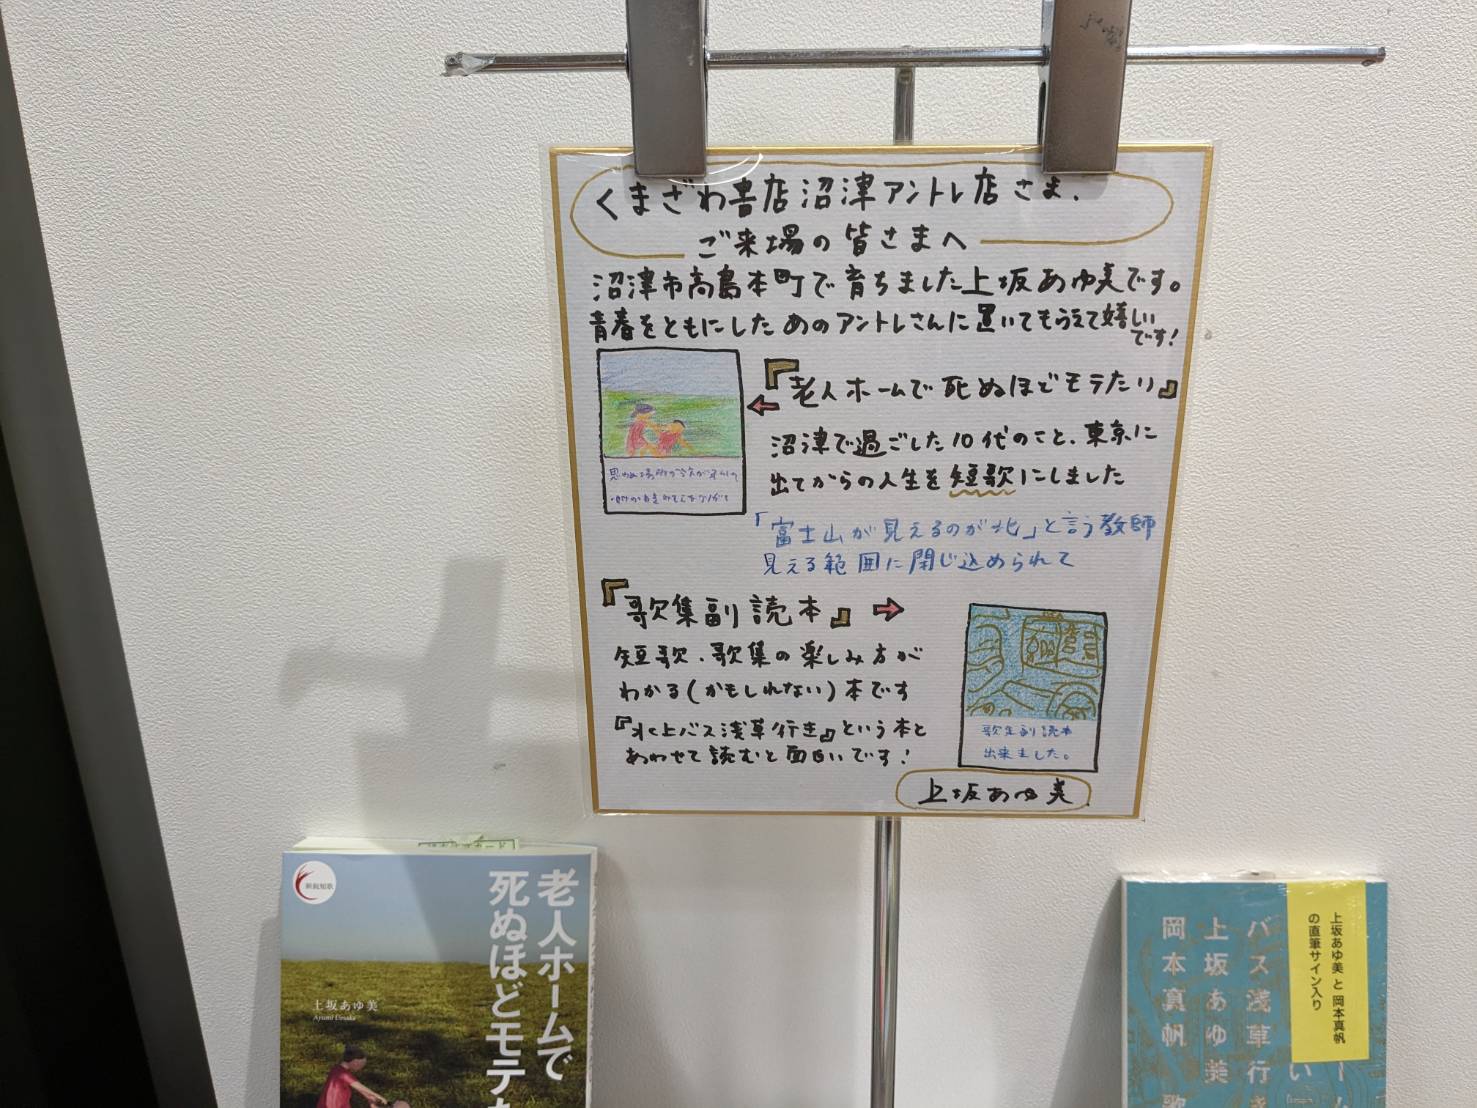 くまざわ書店沼津アントレ店さま、
ご来場の皆さまへ
沼津市高島本町で育ちました上坂あゆ美です。
青春をともにしたあのアントレさんに置いてもらえて嬉しい
です!
『老人ホームで死ぬほどモテたい』
沼津で過ごした10代のこと、東京に
出てからの人生を短歌にしました
「富士山が見えるのが北」と言う教師
見える範囲に閉じ込められて
『歌集副読本』
短歌、歌集の楽しみ方が
わかる(かもしれない)本です
『水上バス浅草行き』という本と
あわせて読むと面白いです!
歌集副読本
出来ました。
上坂あゆ美
新鋭短歌
老人ホームで
死ぬほどモテた
上坂あゆ美
Ayumi Uesaka
上坂あゆ美 と 岡本真帆
の直筆サイン入り
バス浅草行き
上坂あゆ美
岡本真帆 歌